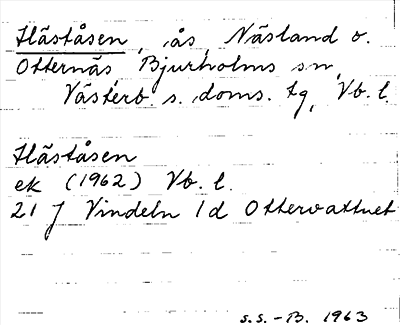 Häståsen, ås, Näsland o.
Otternäs, Bjurholms sn,
Västerb. s. doms. tg, Vb. l.
Häståsen
ek (1962) Vb. l.
21 J Vindeln 1d Ottervattnet
S.S.-B. 1963